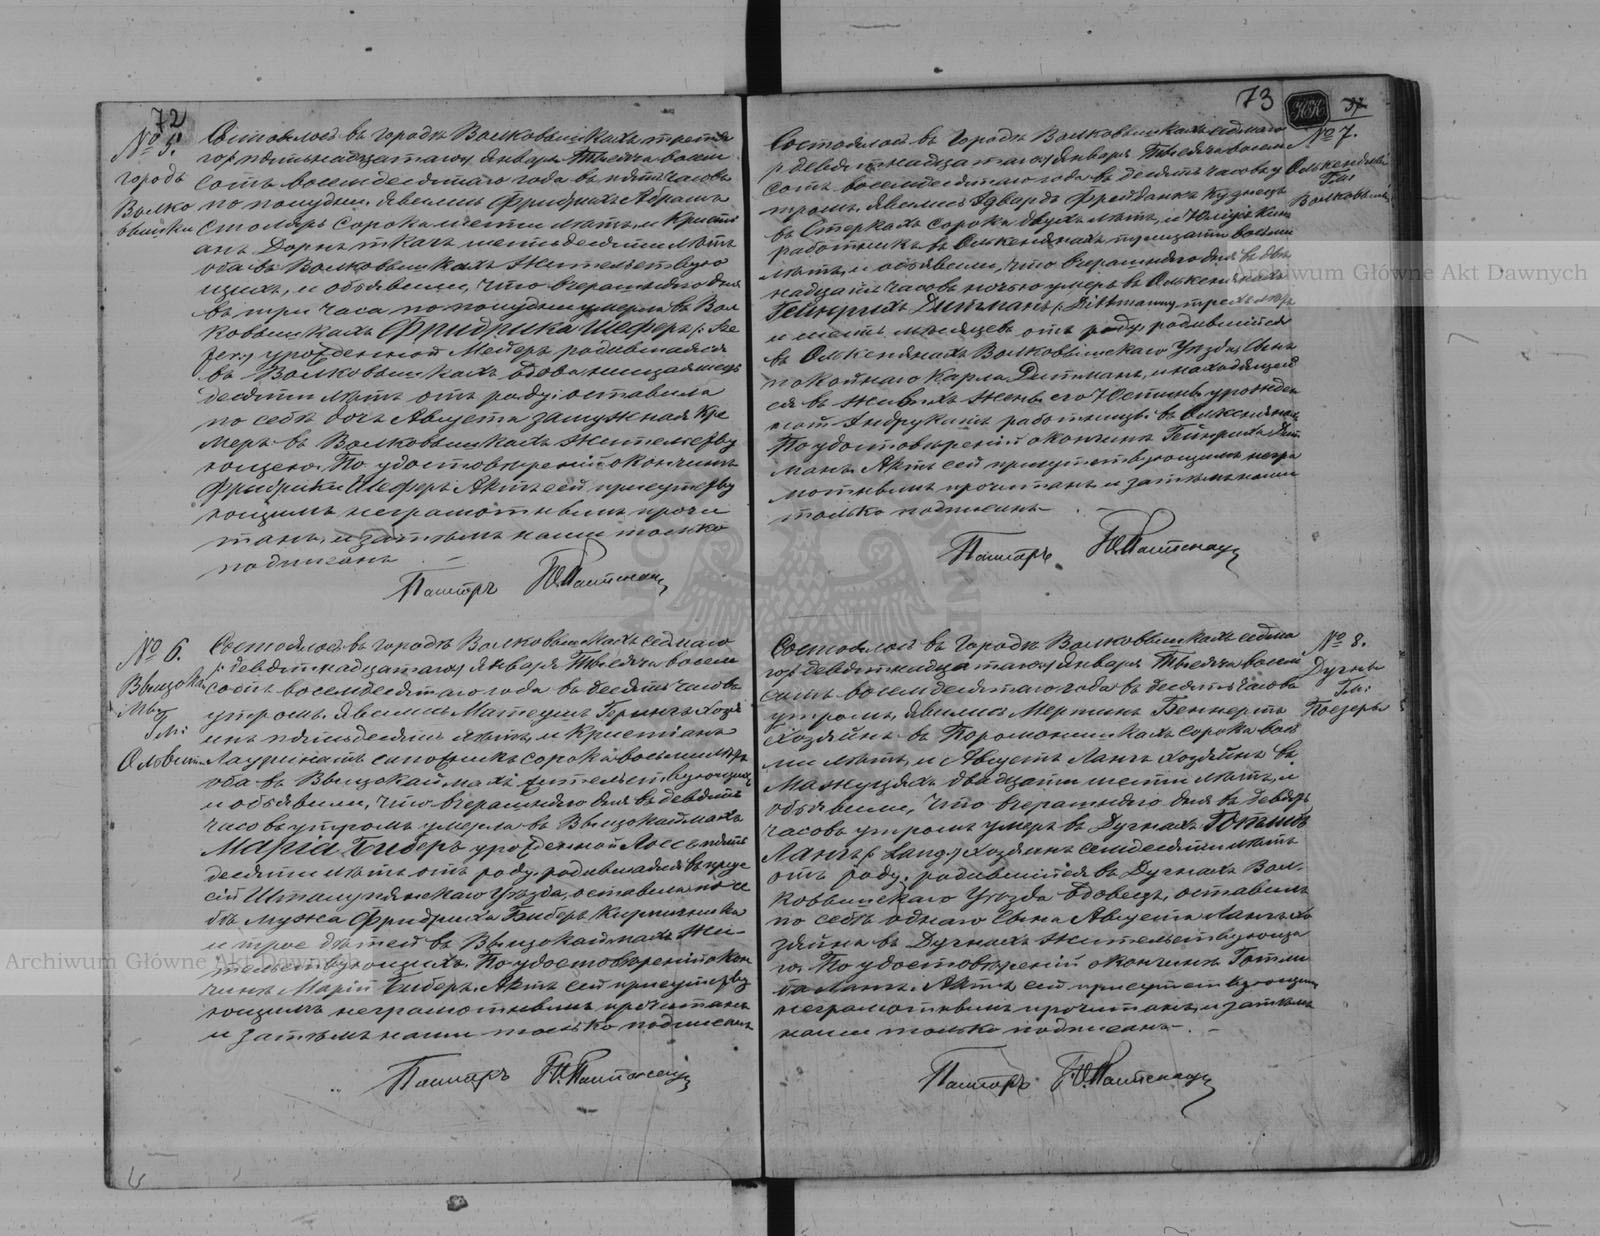 72
№ 5.
городъ
Волко
вышки
Состоялось въ городѣ Волковышкахъ третья
го /: пятнадцатаго :/ Января Тысяча восем
сотъ восемдесятаго года въ пять часовъ
по полудни. Явились Фридрихъ Абрамъ
столяръ сорока шести лѣтъ, и Кристі
анъ Дорнъ ткачъ шестьдесяти лѣтъ
оба въ Волковышкахъ жительствую
щіе, и объявили, что вчерашняго дня
въ три часа по полудни умерла въ Вол
ковышкахъ Фридрика Шеферъ /: Sche
fer :/ урожденной Мейеръ родившаяся
въ Волковышкахъ вдова нищая шесть
десяти лѣтъ отъ роду; оставила
по себѣ дочь Августа замужная Кре
меръ въ Волковышкахъ жительству
ющею. По удостовѣреніи о кончинѣ
Фридрики Шеферъ, Актъ сей присутству
ющимъ неграмотнымъ прочи
танъ, и затѣмъ нами только
подписанъ
Пасторъ
№ 6.
Высока
Гм:
Состоялось въ городѣ Волковышкахъ седмаго
/: девятнадцатаго :/ Января Тысяча восем
сотъ восемдесятаго года въ десять часовъ
утромъ. Явились Матеушъ Герингъ хозя
инъ пятьдесяти лѣтъ, и Кристіанъ
Лауринатъ сапожникъ сорока восьми лѣтъ
оба въ Высокаймахъ жительствующіе,
и объявили, что вчерашняго дня въ девять
часовъ утромъ умерла въ Высокаймахъ
Марія Гиберъ урожденной Лоссъ пять
десяти лѣтъ отъ роду, родившаяся въ Прус
сіи Шталупянскаго Уѣзда, оставила по се
бѣ мужа Фридриха Гиберъ Кирпичника
и трое дѣтей въ Высокаймахъ жи
тельствующихъ. По удостовѣреніи о кон
чинѣ Маріи Гиберъ, Актъ сей присутству
ющимъ неграмотнымъ прочитанъ
и затѣмъ нами только подписанъ
Пасторъ
73
№ 7.
Олкеняны
Гм:
Волковышки
Состоялось въ городѣ Волковышкахъ седмаго
/: девятнадцатаго :/ Января Тысяча восем
сотъ восемдесятаго года въ десять часовъ у
тромъ. Явились Эдвардъ Фрейданкъ кузнецъ
въ Стеркахъ сорока двухъ лѣтъ, и Юлій
работникъ въ Олкенянахъ тридцати восьми
лѣтъ, и объявили, что вчерашняго дня въ две
надцать часовъ ночью умеръ въ Олкенянахъ
Гейнрихъ Дитманъ /: Dittmann :/ трехъ лѣтъ
и шесть мѣсяцевъ отъ роду, родившійся
въ Олкенянахъ Волковышскаго Уѣзда, Сынъ
покойнаго Карла Дитманъ, и находящей
ся въ живыхъ жены его Юстины урожден
ной Андрукатъ работницы въ Олкенянахъ
По удостовѣреніи о кончинѣ Гейнриха Дит
манъ, Актъ сей присутствующимъ негра
мотнымъ прочитанъ и затѣмъ нами
только подписанъ
Пасторъ
№ 8.
Дугны
Гм:
Поезеры
Состоялось въ городѣ Волковышкахъ седма
го /: девятнадцатаго :/ Января Тысяча восем
сотъ восемдесятаго года въ десять часовъ
утромъ, Явились Мертинъ Беннертъ
хозяинъ въ сорока вось
ми лѣтъ, и Августъ Лангъ хозяинъ въ
двадцати шести лѣтъ, и
объявили, что вчерашняго дня въ девять
часовъ утромъ умеръ въ Дугнахъ Готлибъ
Лангъ /: Lang :/ хозяинъ семдесяти лѣтъ
отъ роду, родившійся въ Дугнахъ Вол-
ковышскаго Уѣзда вдовецъ, оставилъ
по себѣ однаго Сына Августа Лангъ хо
зяйна въ Дугнахъ жительствующа
го. По удостовѣреніи о кончинѣ Готли
ба Лангъ, Актъ сей присутствующимъ
неграмотнымъ прочитанъ, и затѣмъ
нами только подписанъ
Пасторъ
Archiwum Główne Akt Dawnych
Archiwum Główne Akt Dawnych